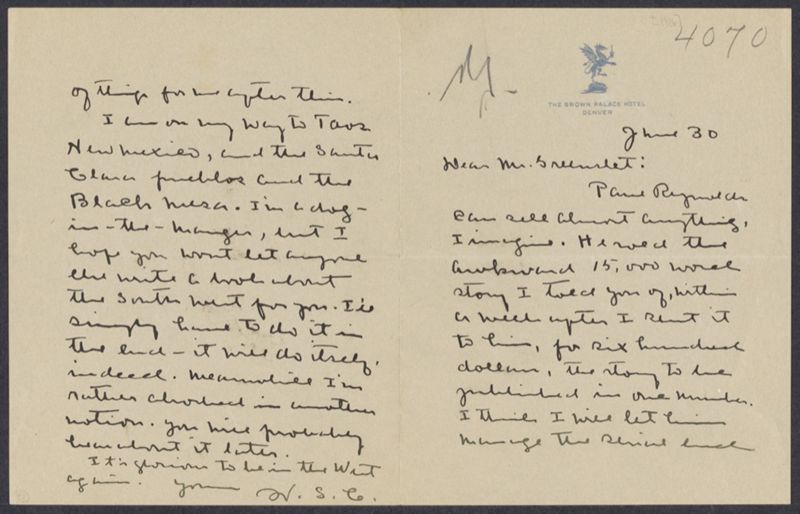 4070
THE BROWN PALACE HOTEL
DENVER
June 30
Dear Mr. Greenslet:
Paul Reynolds
can sell almost anything,
I imagine. He sold the
awkward 15,000 word
story I told you of, within
a week after I sent it
to him, for six hundred
dollars, the story to be
published in one number.
I think I will let him
manage the serial end
of things for me after this.
I am on my way to Taos
New Mexico, and the Santa
Clara pueblos and the
Black Mesa. I'm a dog-
in-the-manger, but I
hope you wont let anyone
else write a book about
the South West for you. I'll
simply have to do it in
the end - it will do itself,
indeed. Meanwhile I'm
rather absorbed in another
notion. You will probably
hear about it later.
It's glorious to be in the West
again. Yours
W. S. C.